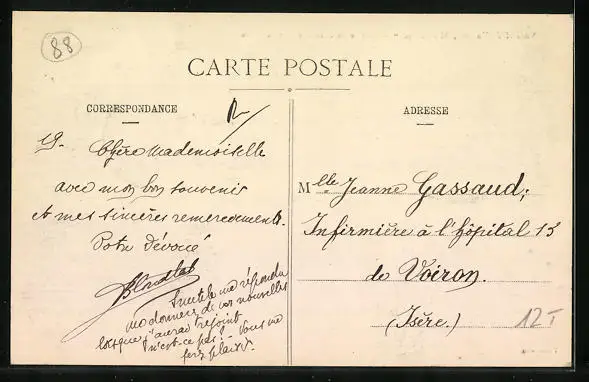 88
CARTE POSTALE
CORRESPONDANCE
ADRESSE
19.
Chère Mademoiselle
avec mon bon souvenir
et mes sincères remerciements.
Votre Dévoué
Inutile me répondre
me donnerez de vos nouvelles
lorsque j'aurai rejoint
n'est-ce pas! Vous me
ferez plaisir
Mlle Jeanne Gassaud;
Infirmière à l'hôpital 13
de Voiron.
(Isère.)
12 T